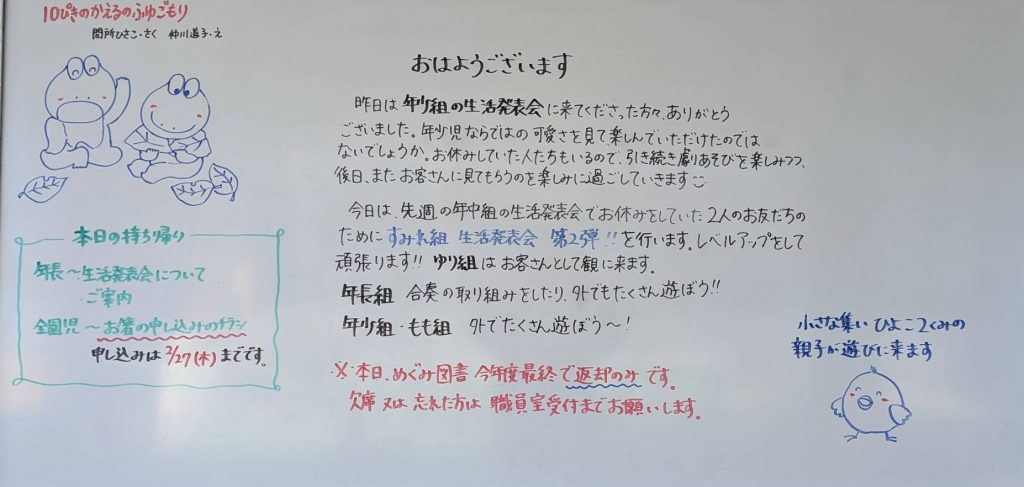 10ぴきのかえるのふゆごもり
間所ひさこ・さく 仲川道子・え
おはようございます
昨日は 年少組の生活発表会に来てくださった方々、ありがとう
ございました。年少児ならではの可愛さを見て楽しんでいただけたのでは
ないでしょうか。お休みしていた人たちもいるので、引き続き劇あそびを楽しみつつ、
後日、またお客さんに見てもらうのを楽しみに過ごしていきます
今日は、先週の年中組の生活発表会でお休みをしていた2人のお友だちの
ために すみれ組 生活発表会 第2弾!!を行います。レベルアップをして
頑張ります!! ゆり組はお客さんとして観に来ます。
年長組 合奏の取り組みをしたり、外でもたくさん遊ぼう!!
年少組・もも組 外でたくさん遊ぼう〜!
※本日、めぐみ図書 今年度最終で返却のみです。
欠席又は忘れた方は 職員室受付までお願いします。
本日の持ち帰り
年長〜生活発表会について
・ご案内
全園児〜お箸の申し込みのチラシ
申し込みは2/27(木)までです。
小さな集い ひよこ2くみの
親子が遊びに来ます